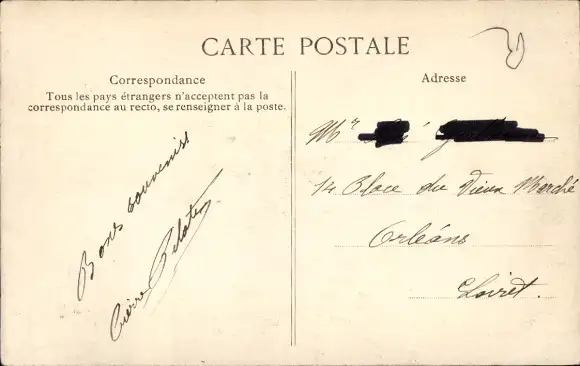 CARTE POSTALE
Correspondance
Tous les pays étrangers n'acceptent pas la
correspondance au recto, se renseigner à la poste.
Bons souvenirs
Pierre
Adresse
Mr
14 Place du Vieux Marché
Orléans
Loiret.